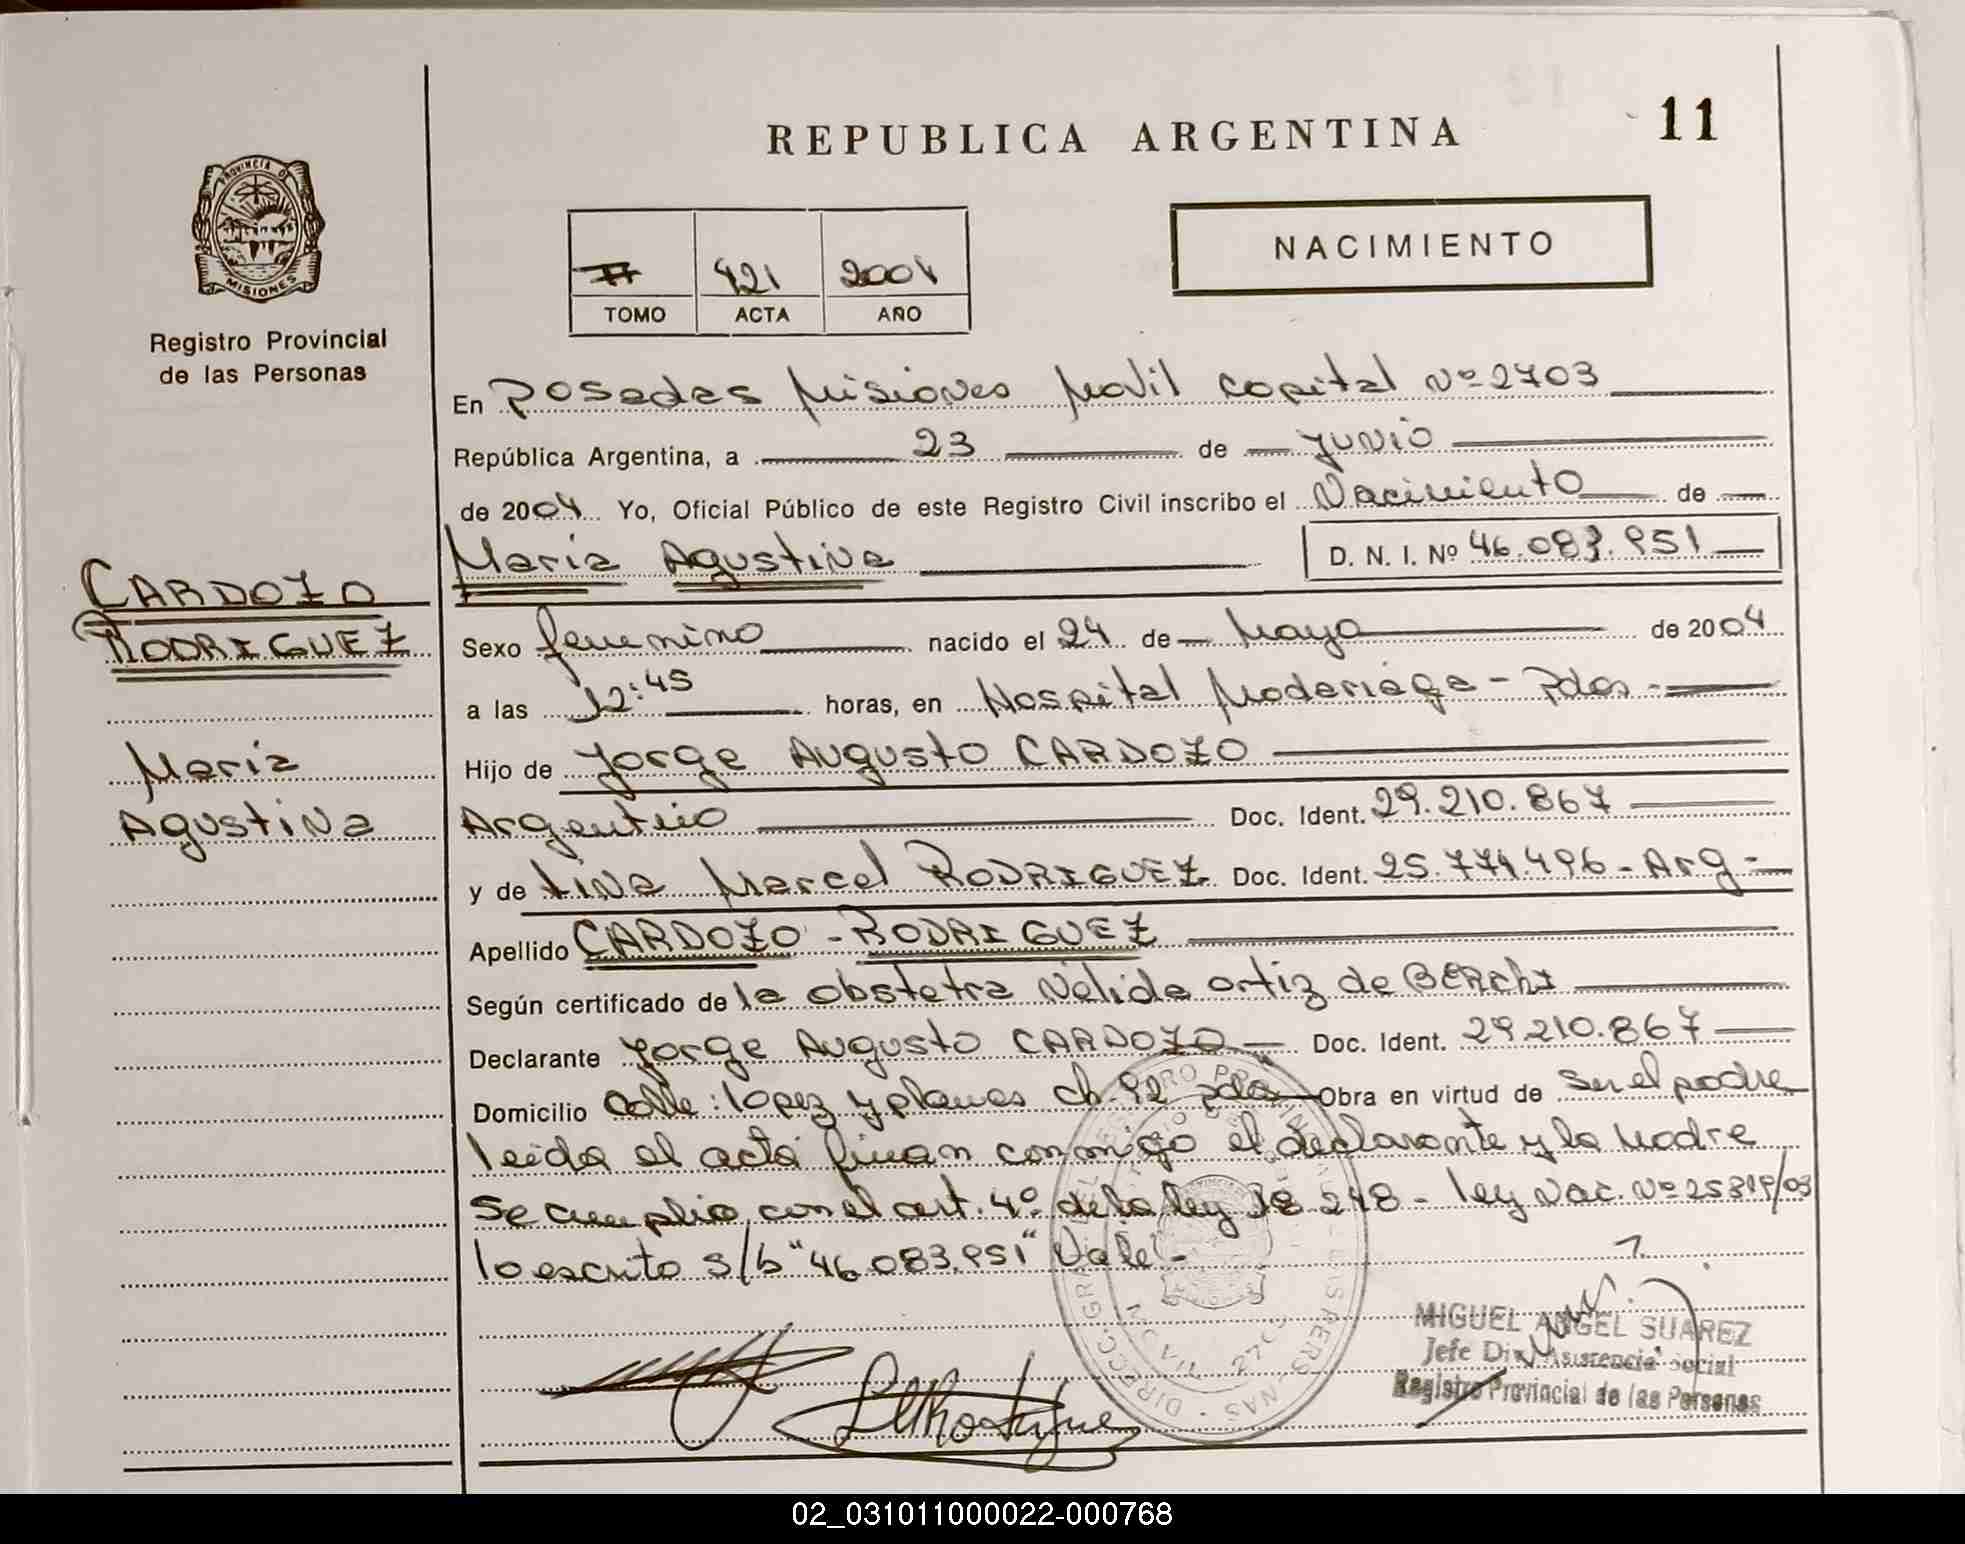 REPUBLICA ARGENTINA
11
PROVINCIA DE
MISIONES
Registro Provincial
de las Personas
421 2004
TOMO ACTA AÑO
NACIMIENTO
En Posadas Misiones Movil Capital Nº 2703
República Argentina, a 23 de Junio
de 2004 Yo, Oficial Público de este Registro Civil inscribo el Nacimiento de
Maria Agustina D. N. I. Nº 46.083.951
CARDOZO
RODRIGUEZ
Maria
Agustina
Sexo femenino nacido el 24 de Mayo de 2004
a las 12:45 horas, en Hospital Madariaga - Pdas -
Hijo de Jorge Augusto CARDOZO
Argentino Doc. Ident. 29.210.867
y de Lina Marcel RODRIGUEZ Doc. Ident. 25.774.496 - Arg -
Apellido CARDOZO - RODRIGUEZ
Según certificado de la obstetra Nelida Ortiz de BERCHI
Declarante Jorge Augusto CARDOZO Doc. Ident. 29.210.867
Domicilio Calle: Lopez y planes ch. 92 pdas Obra en virtud de Ser el padre
leida el acta firman conmigo el declarante y la Madre
Se cumplio con el art. 4º de la ley 18 248 - ley Nac. Nº
lo escrito s/b "46.083.951" Vale -
MIGUEL ANGEL SUAREZ
Jefe Div Asistencia Social
Registro Provincial de las Personas
02_031011000022-000768